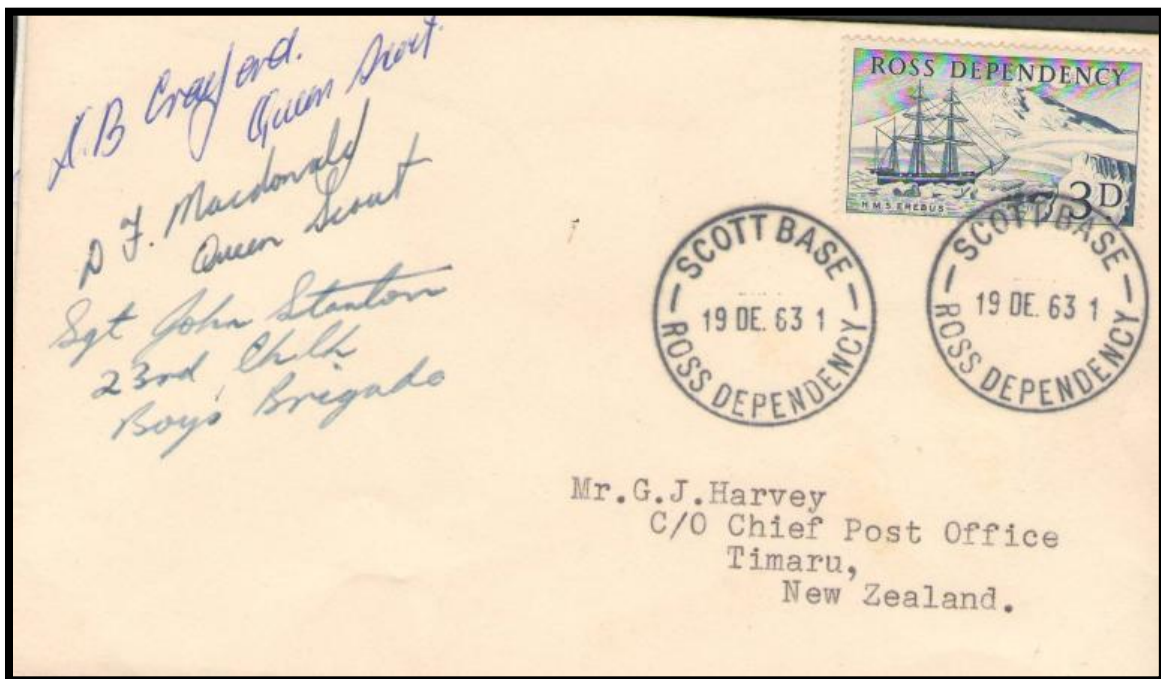 A.B Crawford.
Queen Scout.
D F. Macdonald
Queen Scout
Sgt John Stanton
23rd ChCh
Boys' Brigade
ROSS DEPENDENCY
3D
H.M.S EREBUS
SCOTT BASE
19 DE. 63 1
ROSS DEPENDENCY
SCOTT BASE
19 DE. 63 1
ROSS DEPENDENCY
Mr.G.J.Harvey
C/O Chief Post Office
Timaru,
New Zealand.